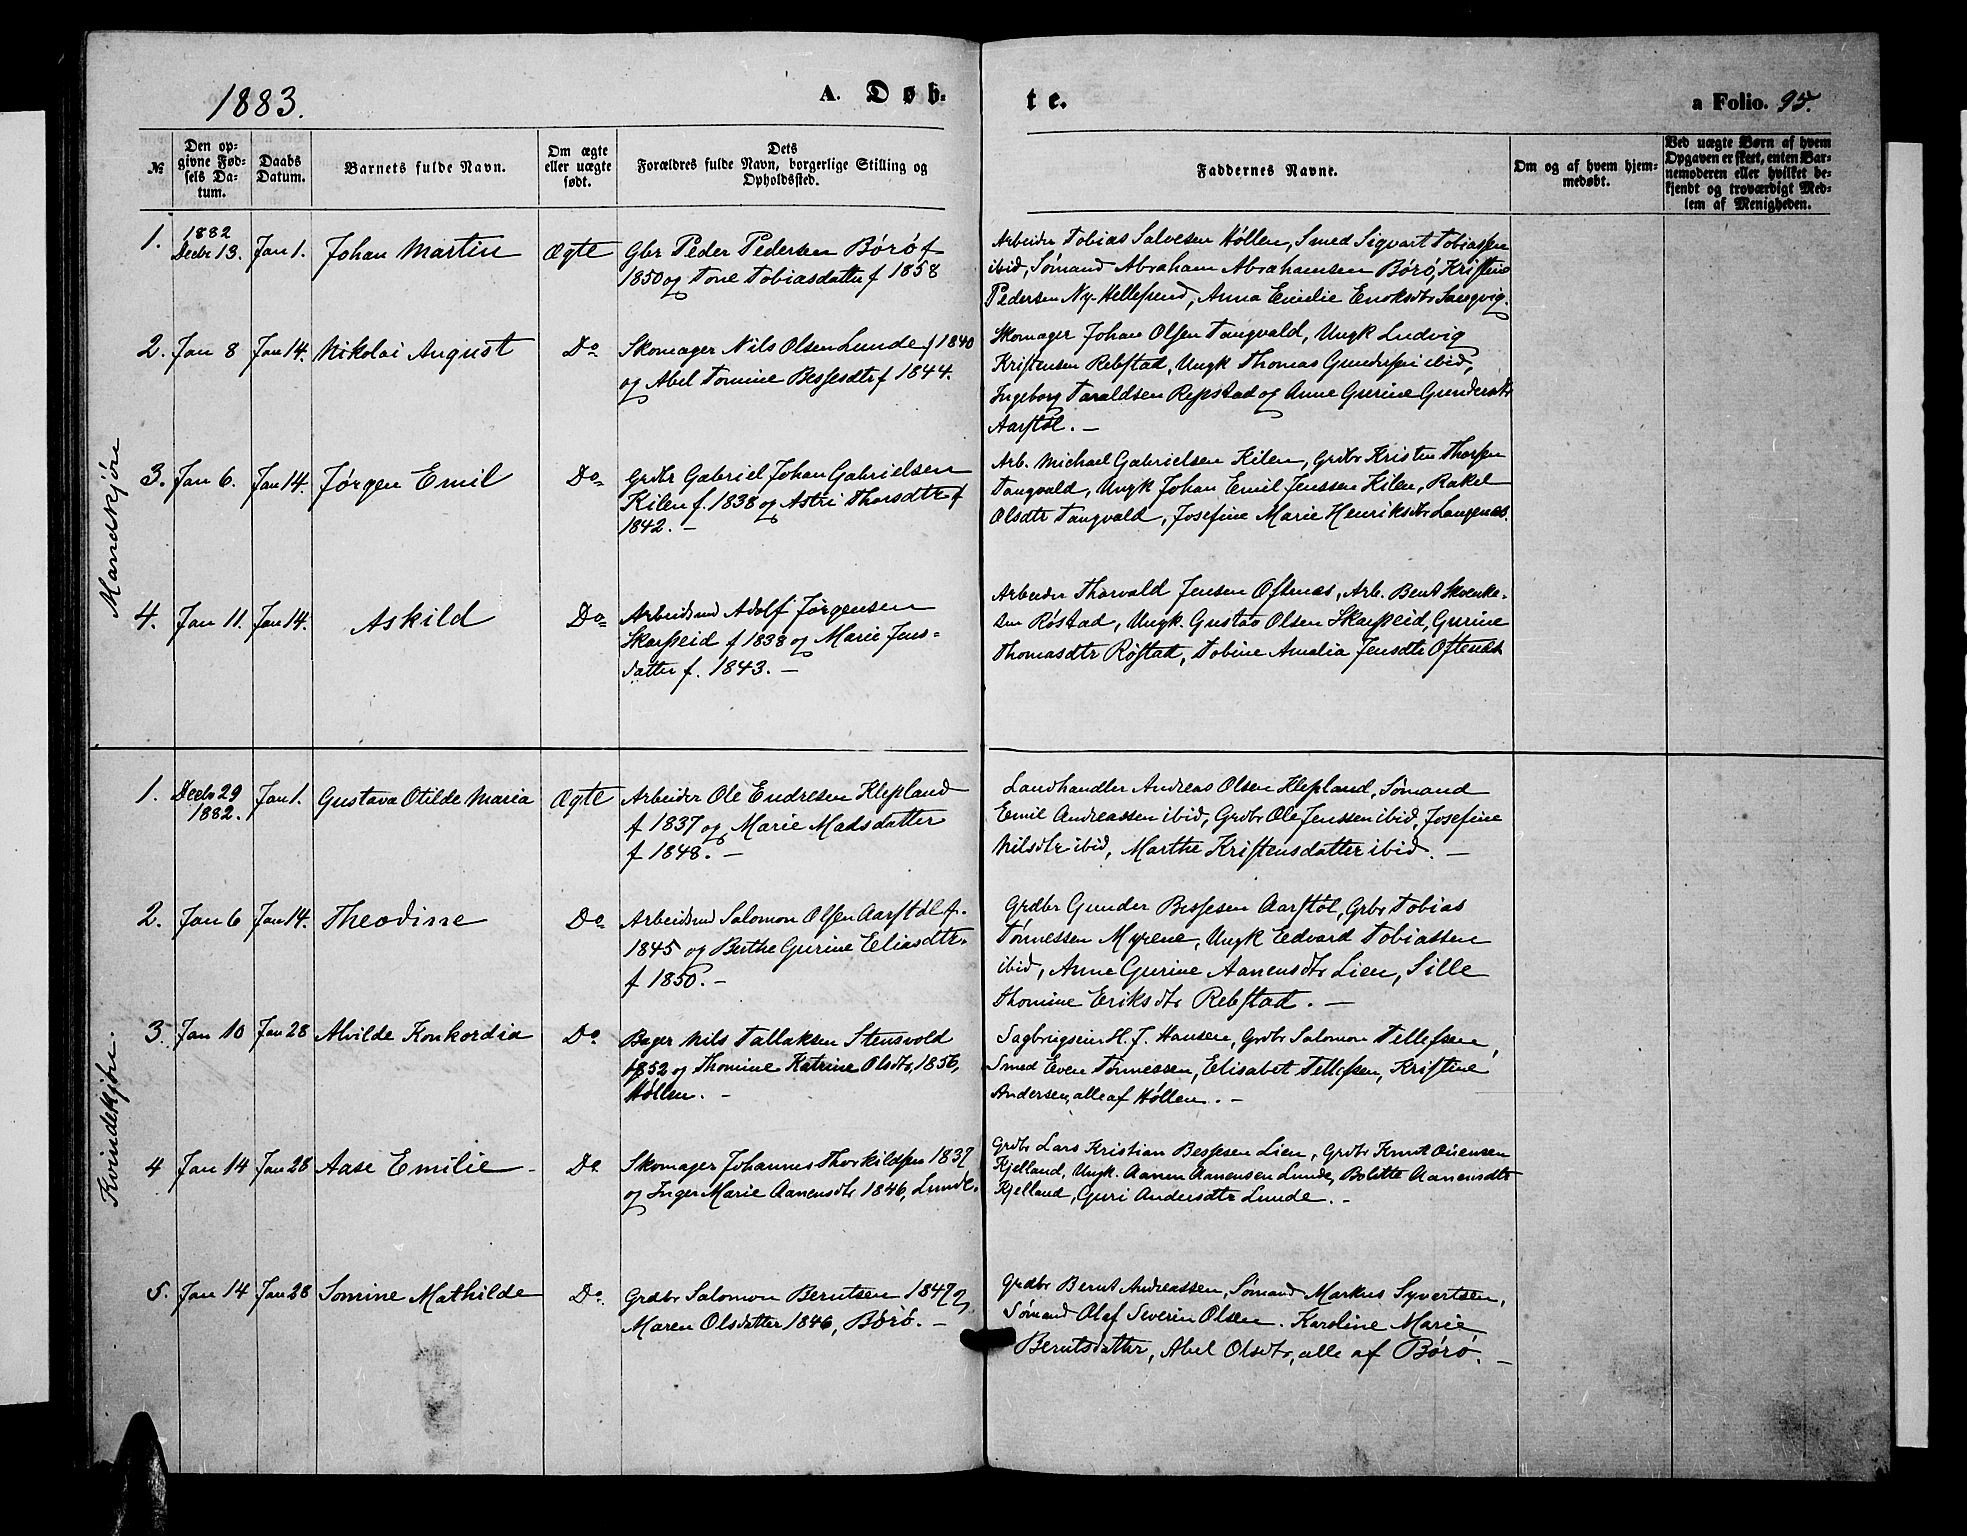 1883.
A. Døb-
te.
a Folio. 95.
№
Den op-
givne Fød-
sels Da-
tum.
Daabs
Datum.
Barnets fulde Navn.
Om ægte
eller uægte
født.
Dets
Forældres fulde Navn, borgerlige Stilling og
Opholdssted.
Faddernes Navne.
Om og af hvem hjem-
medøbt.
Ved uægte Børn af hvem
Opgaven er skeet, enten Bar-
nemoderen eller hvilket be-
kjendt og troværdigt Med-
lem af Menigheden.
Mandskjøn
1. 1882 Decbr 13. Jan 1. Johan Martin Ægte
Gbr Peder Pedersen Børø f
1850 og Tone Tobiasdatter f 1858
Arbeider Tobias Salvesen Høllen, Smed Sigvart Tobiassen
ibid, Sømand Abraham Abrahamsen Børø, Kristine
Pedersen Ny-Hellesund, Anna Emilie Enoksdtr Langvig.
2. Jan 8 Jan 14. Nikolai August Do
Skomager Nils Olsen Lunde f 1840
og Abel Tomine Bessesdtr f 1844.
Skomager Johan Olsen Tangvald, Ungk Ludvig
Kristensen Rebstad, Ungk Thomas Gundersen ibid,
Ingeborg Taraldsen Repstad og Anne Gurine Gundersdtr
Aarstøl. —
3. Jan 6. Jan 14. Jørgen Emil Do
Grdbr Gabriel Johan Gabrielsen
Kilen f. 1838 og Astri Thorsdtr f
1842. —
Arb. Michael Gabrielsen Kilen, Grdbr Kristen Thorsen
Tangvald, Ungk Johan Emil Jenssen Kilen, Rakel
Olsdtr Tangvald, Josefine Marie Henriksdtr Langenes.
4. Jan 11. Jan 14. Askild Do
Arbeidsmd Adolf Jørgensen
Skarpeid f 1838 og Marie Jens-
datter f. 1843. —
Arbeider Thorvald Jensen Oftenæs, Arb. Bent Skvenke-
sen Røstad, Ungk. Gustav Olsen Skarpeid, Gurine
Thomasdtr Røstad, Tobine Amalia Jensdtr Oftenes
Kvindekjøn.
1. Decbr 29 1882. Jan 1. Gustava Otilde Maria Ægte
Arbeider Ole Endresen Klepland
f 1837 og Marie Madsdatter
f 1848. —
Landhandler Andreas Olsen Klepland, Sømand
Emil Andreassen ibid, Grdbr Ole Jenssen ibid, Josefine
Nilsdtr ibid, Marthe Kristensdatter ibid. —
2. Jan 6 Jan 14. Theodisse Do
Arbeidsmd Salomon Olsen Aarstøl f.
1845 og Berthe Gurine Eliasdtr.
f 1850. —
Grdbr Gunder Bessesen Aarstøl, Grbr Tobias
Tønnessen Myrene, Ungk Edvard Tobiassen
ibid, Anne Gurine Aanensdtr Lien, Sille
Thomine Eriksdtr Rebstad. —
3. Jan 10 Jan 28 Alvilde Konkordia Do
Bager Nils Tallaksen Stensvold
1852 og Thomine Katrine Olsdtr, 1856,
Høllen. —
Sagbrugseier H. J. Hansen, Grdbr Salomon Tellefssen,
Smed Even Tønnessen, Elisabet Tellefsen, Kristine
Andersen, alle af Høllen. —
4 Jan 14 Jan 28 Aase Emilie — Do
Skomager Johannes Thorkildsen 1837
og Inger Marie Aanensdtr 1846, Lunde.
Grdbr Lars Kristian Bessesen Lien, Grdbr Knut
Kjelland, Ungk. Aanen Aanensen Lunde, Bolette Aanensdtr
Kjelland, Guri Andersdtr Lunde. —
5. Jan 14 Jan 28 Somine Mathilde Do
Grdbr Salomon Berntsen 1847 og
Maren Olsdatter 1846, Børø. —
Grdbr Bernt Andreassen, Sømand Markus Syvertsen,
Sømand Olaf Severin Olsen. Karoline Marie
Berntsdatter, Abel Olsdtr, alle af Børø. —